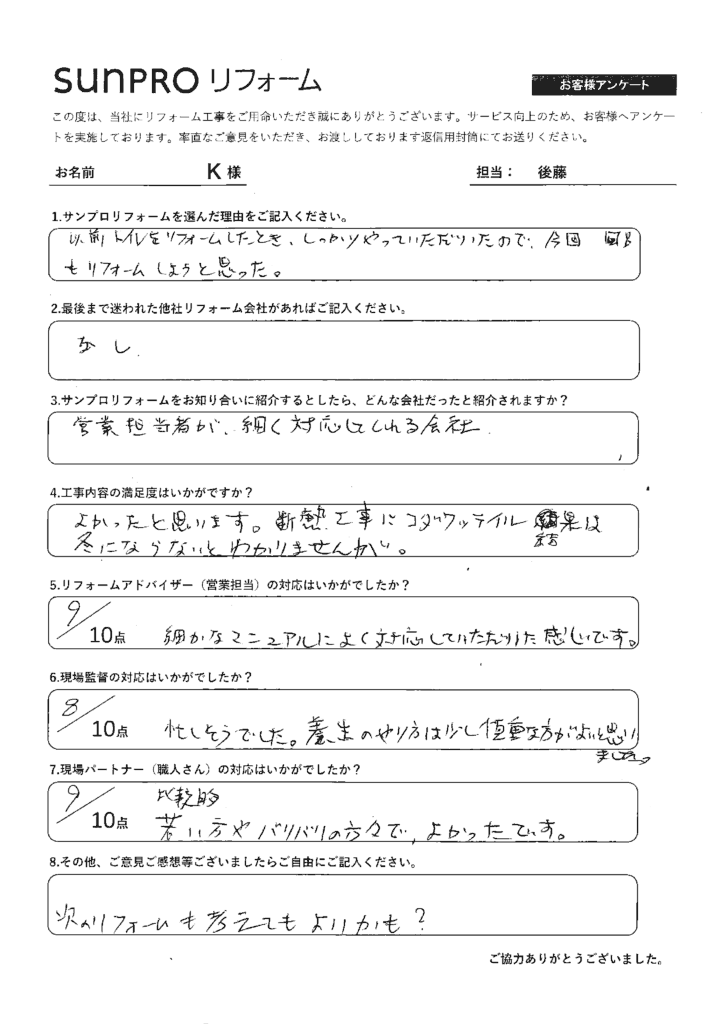 sunPRO リフォーム
お客様アンケート
この度は、当社にリフォーム工事をご用命いただき誠にありがとうございます。サービス向上のため、お客様へアンケー
トを実施しております。率直なご意見をいただき、お渡ししております返信用封筒にてお送りください。
お名前 K 様 担当： 後藤
1.サンプロリフォームを選んだ理由をご記入ください。
以前トイレをリフォームしたとき、しっかりやっていただいたので、今回
もリフォームしようと思った。
2.最後まで迷われた他社リフォーム会社があればご記入ください。
なし.
3.サンプロリフォームをお知り合いに紹介するとしたら、どんな会社だったと紹介されますか？
営業担当者が、細く対応してくれる会社.
4.工事内容の満足度はいかがですか？
よかったと思います。断熱工事に 結果は
冬にならないとわかりませんが。
5.リフォームアドバイザー（営業担当）の対応はいかがでしたか？
9/10点 細かなマニュアルによく対応していただけた感じです。
6.現場監督の対応はいかがでしたか？
8/10点 忙しそうでした。養生のやり方は少し値重な方がよいと思い
ました。
7.現場パートナー（職人さん）の対応はいかがでしたか？
比較的
9/10点 若い方やバリバリの方々で、よかったです。
8.その他、ご意見ご感想等ございましたらご自由にご記入ください。
次のリフォームも考えてもよいかも？
ご協力ありがとうございました。